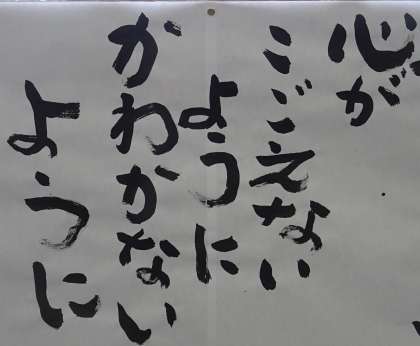 心が
こごえない
ように
かわかない
ように